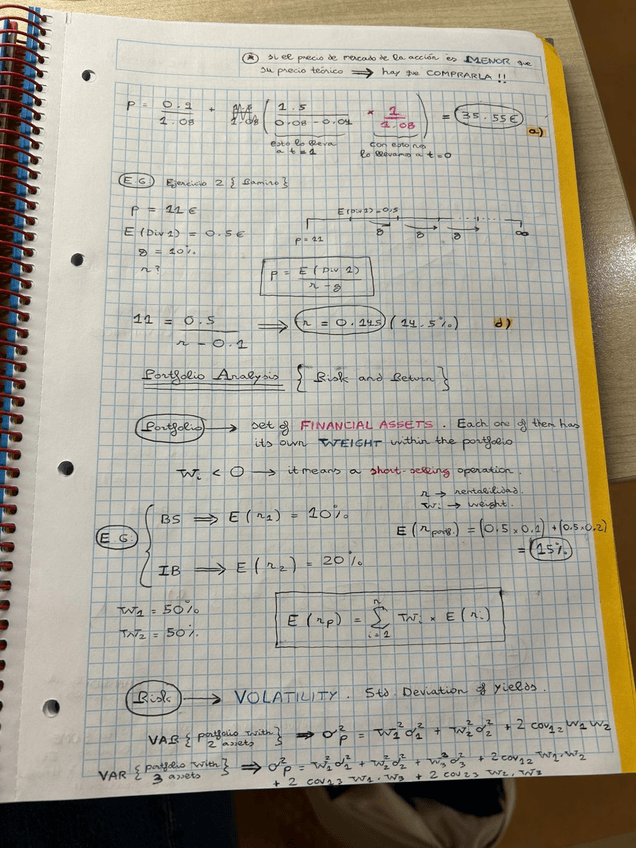 * si el precio de mercado de la acción es MENOR que
su precio teórico ⟹ hay que COMPRARLA !!
P = 0.1 / 1.08 + 1.08 ( 1.5 / 0.08 - 0.04 * 1 / 1.08 ) = 35.55€ a)
esto lo lleva a t=1
con esto nos lo llevamos a t=0
E.G. Ejercicio 2 { Ramiro }
P = 11 €
E (Div 1) = 0.5 €
g = 10%
r?
E(Div1) = 0.5
P = 11 g g g ∞
P = E (Div 1) / r - g
11 = 0.5 / r - 0.1 ⟹ r = 0.145 (14.5%) d)
Portfolio Analysis { Risk and Return }
Portfolio → set of FINANCIAL ASSETS. Each one of them has
its own WEIGHT within the portfolio
Wi < 0 → it means a short-selling operation.
r → rentabilidad.
Wi → weight.
E.G. { BS ⟹ E (r1) = 10%
E (r port.) = (0.5 × 0.1) + (0.5 × 0.2)
= 15%
IB ⟹ E (r2) = 20%
W1 = 50%
W2 = 50%
E (rp) = n Σ i=1 Wi × E (ri)
Risk → VOLATILITY. Std. Deviation of yields.
VAR { portfolio with 2 assets } ⟹ σ²p = W²1 σ²1 + W²2 σ²2 + 2 cov12 W1 W2
VAR { portfolio with 3 assets } ⟹ σ²p = W²1 σ²1 + W²2 σ²2 + W²3 σ²3 + 2 cov12 W1. W2
+ 2 cov13 W1. W3 + 2 cov23 W2. W3